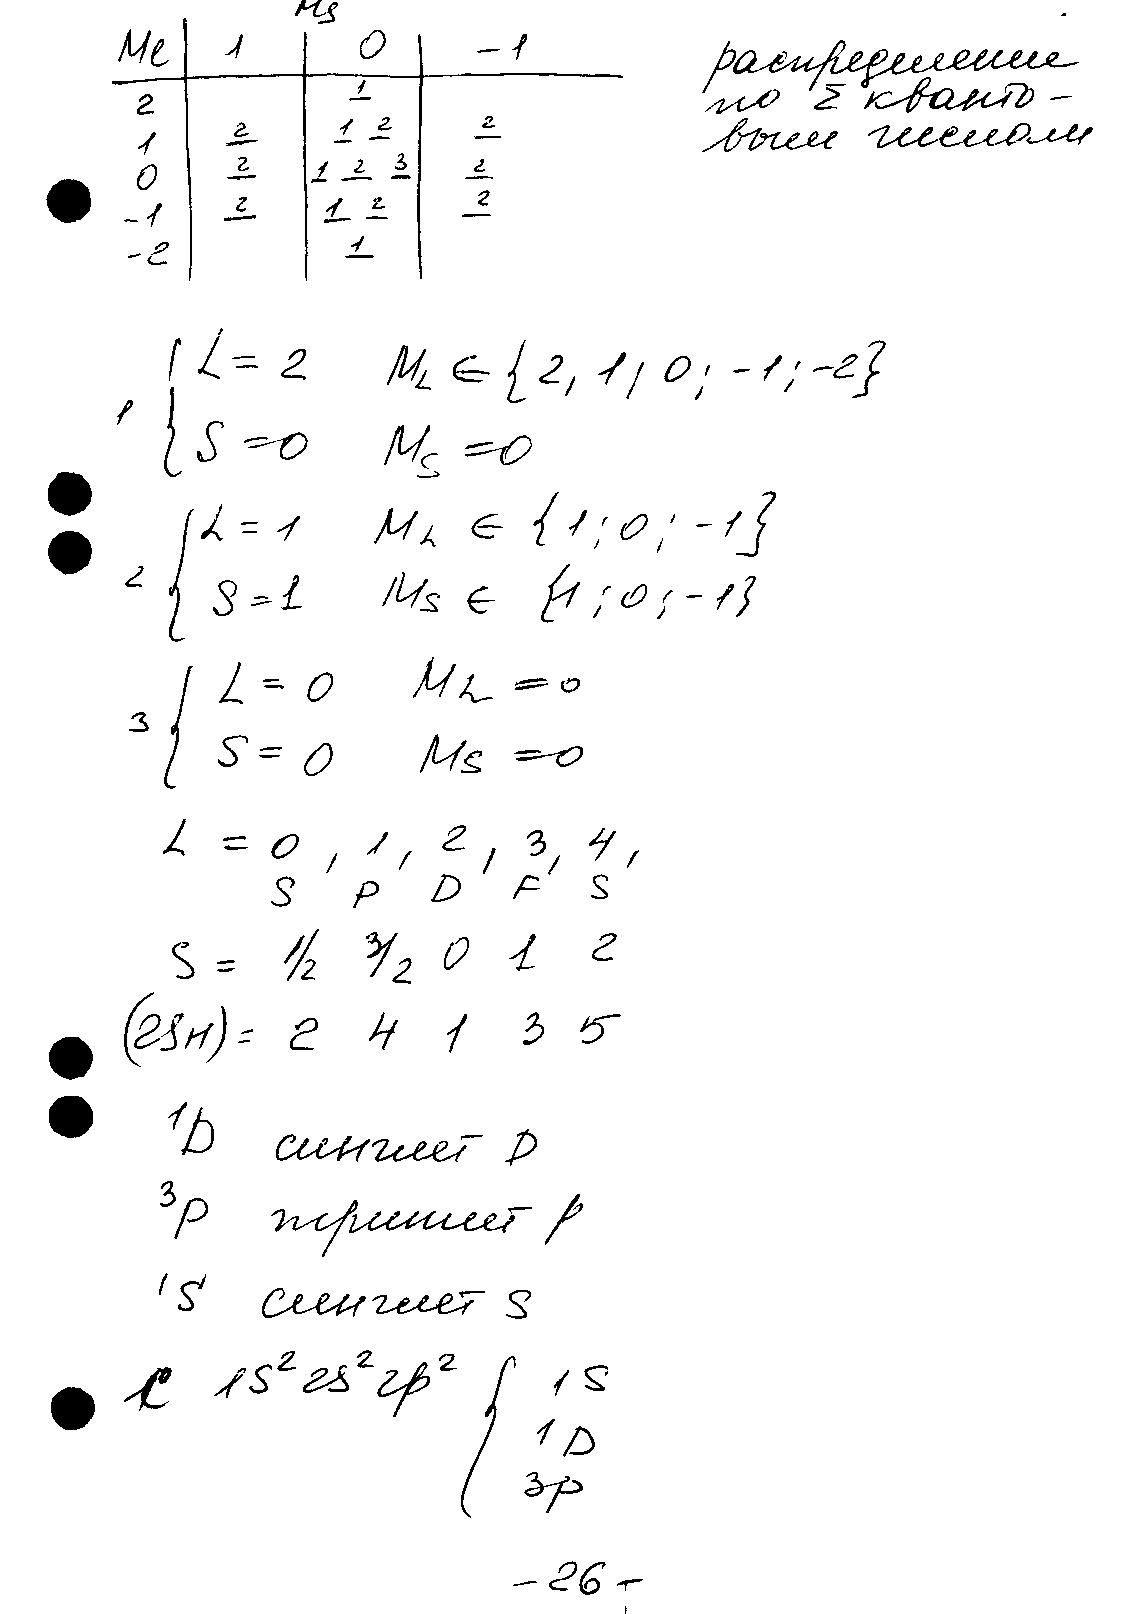 Ms
Me 1 0 -1
2 1
1 2 1 2 2
0 2 1 2 3 2
-1 2 1 2 2
-2 1
распределение
по Σ кванто-
вым числам
1 { L = 2 M_L ∈ {2, 1; 0; -1; -2}
S = 0 M_S = 0
2 { L = 1 M_L ∈ {1; 0; -1}
S = 1 M_S ∈ {1; 0; -1}
3 { L = 0 M_L = 0
S = 0 M_S = 0
L = 0, 1, 2, 3, 4,
S P D F S
S = 1/2 3/2 0 1 2
(2S+1) = 2 4 1 3 5
¹D синглет D
³P триплет P
¹S синглет S
C 1S² 2S² 2p² { 1S
¹D
3P
-26-